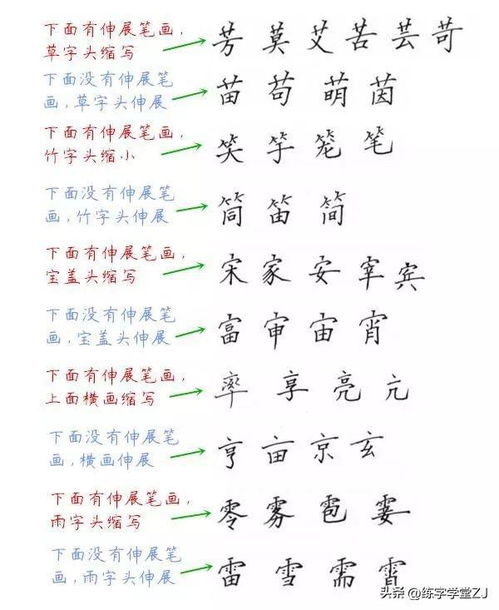 下面有伸展笔画，
草字头缩写
芳 莫 艾 苦 芸 苛
下面没有伸展笔
画，草字头伸展
苗 苟 萌 茵
下面有伸展笔画，
竹字头缩小
笑 竽 笼 笔
下面没有伸展笔
画，竹字头伸展
筒 笛 简
下面有伸展笔画，
宝盖头缩写
宋 家 安 宰 宾
下面没有伸展笔
画，宝盖头伸展
富 审 宙 宵
下面有伸展笔画，
上面横画缩写
率 享 亮 亢
下面没有伸展笔
画，横画伸展
亨 亩 京 玄
下面有伸展笔画，
雨字头缩写
零 雾 雹 霎
下面没有伸展笔
画，雨字头伸展
雷 雪 需 霄
头条 @练字学堂ZJ